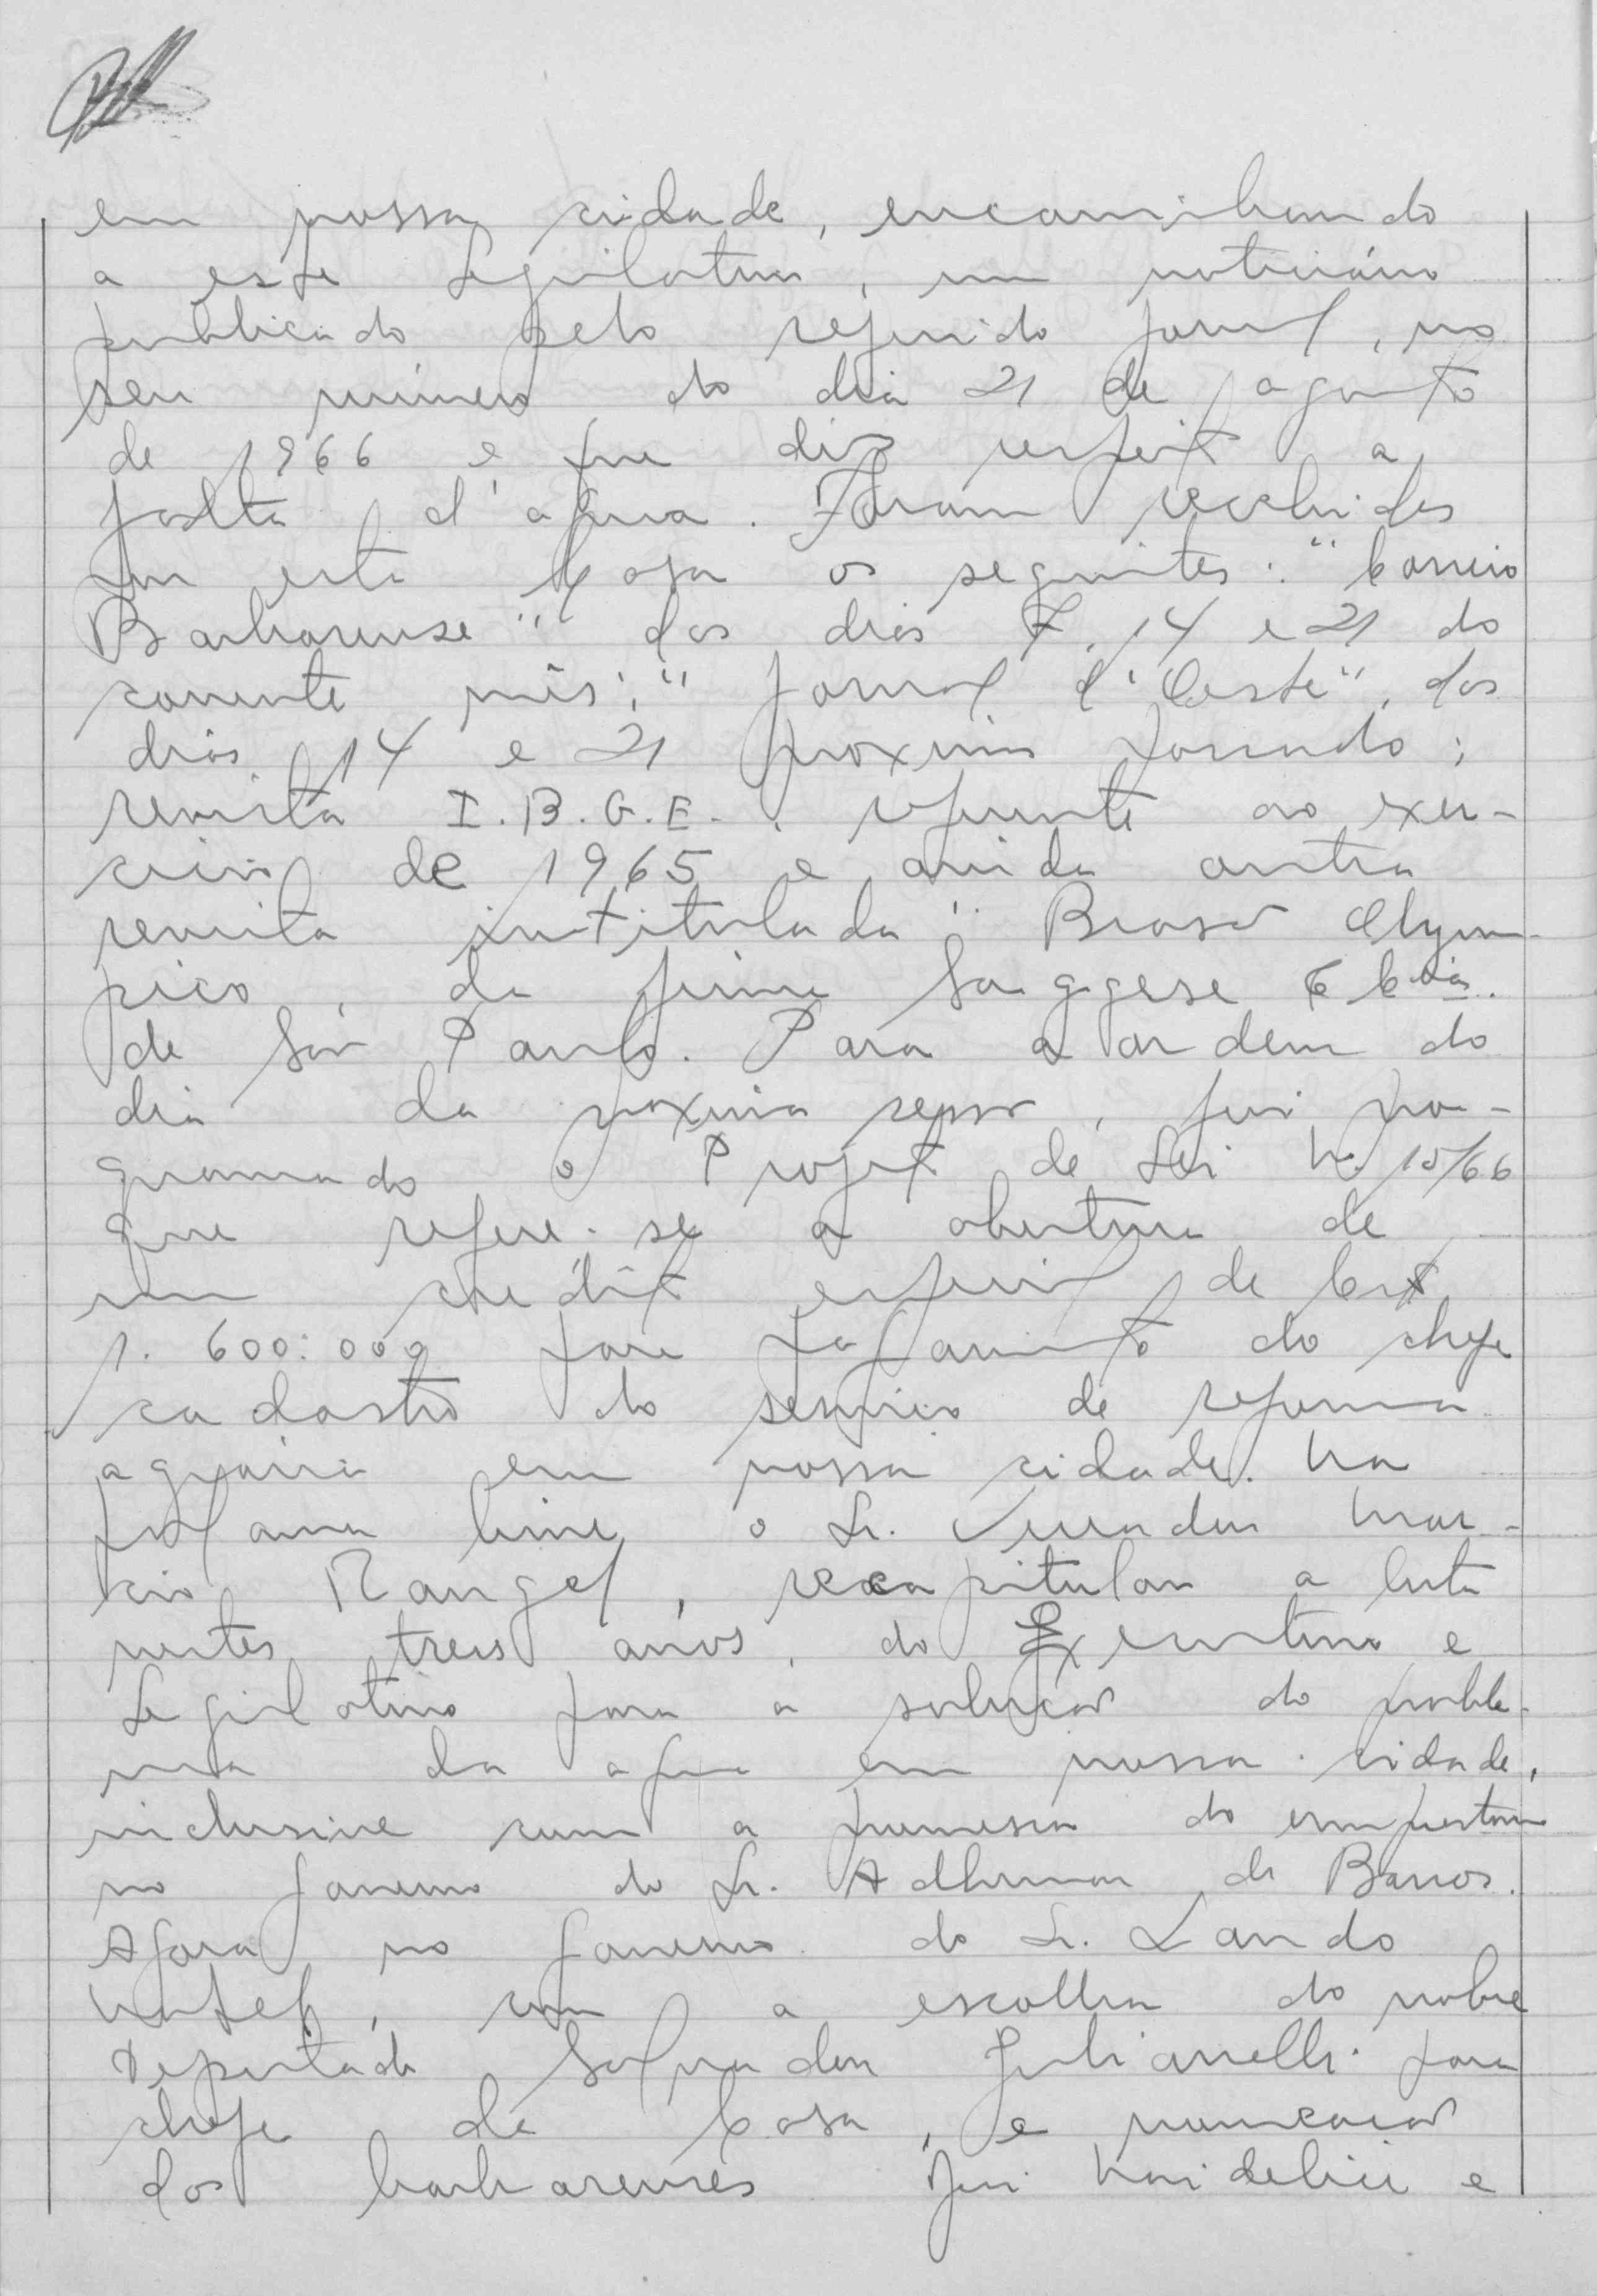 em nossa cidade, encaminhando
a este Legislativo, um noticiário
publicado pelo referido jornal, no
seu número do dia 21 de agosto
de 1966 e que diz respeito a
falta d'agua. Foram recebidos
por esta Casa os seguintes: "Correio
Barbarense" dos dias 7, 14 e 21 do
corrente mês; "Jornal d'Oeste", dos
dias 14 e 21 proximo passado;
revista I.B.G.E. referente ao exer-
cicio de 1965 e ainda outra
revista intitulada: Brasil Olym-
pico, da firma Saggese & Cia.
de São Paulo. Para a ordem do
dia da proxima sessão, foi pro-
gramado o Projeto de Lei N. 15/66
que refere-se a abertura de
um crédito especial de Cr$
1.600:000 para pagamento do chefe
cadastro do serviço de reforma
agrária em nossa cidade. Na
palavra livre o Sr. Vereador Mar-
cio Rangel, recapitulou a luta
nestes treis anos, do Executivo e
Legislativo para a solução do proble-
ma da agua em nossa cidade,
inclusive com a promessa do emprestimo
no governo do Sr. Adhemar de Barros.
Agora no governo do Sr. Laudo
Natel, com a escolha do nobre
Deputado Salvador Julianelli para
chefe da Casa, e nomeação
dos barbarenses Jui e